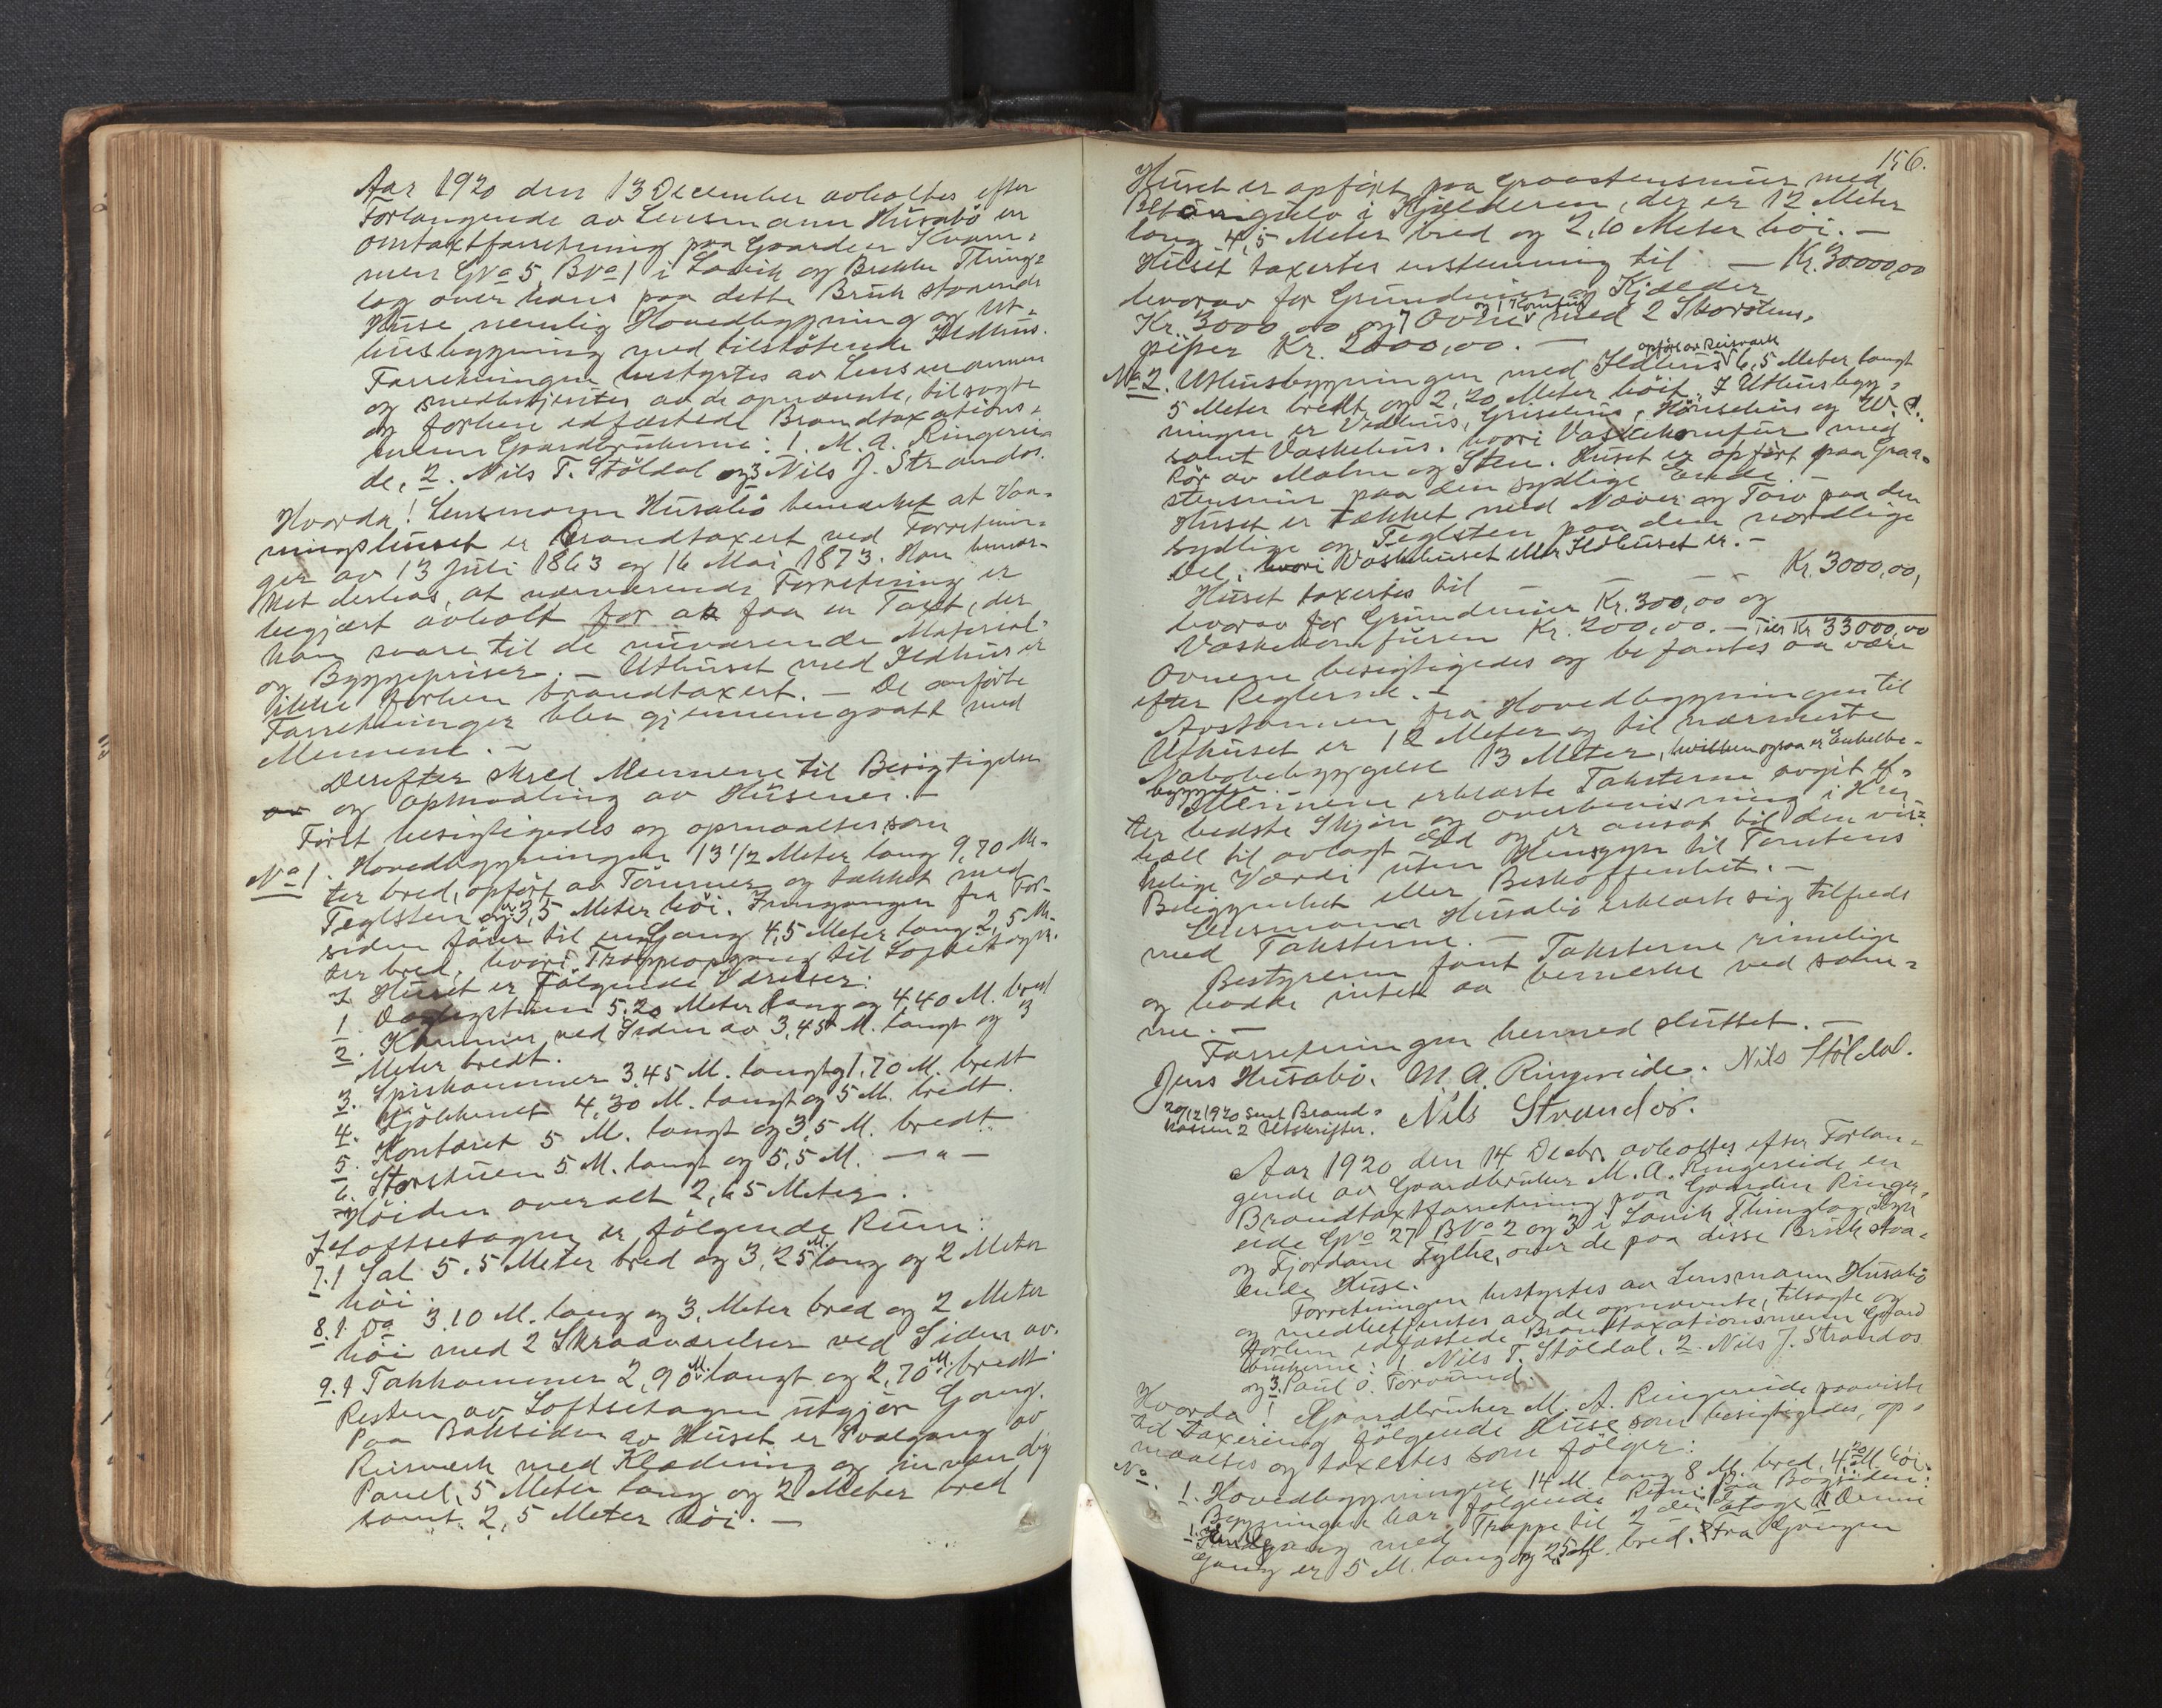 Aar 1920 den 13 December avholtes efter
Forlangende av Lensmann Husabö en
omtaxtforretning paa Gaarden Kvam-
men GNo 5 BNo 1 i Lavik og Brekke Thing-
lag over hans paa dette Bruk staaende
Huse nemlig Hovedbygning og Ut-
husbygning med tilstötende Ildhus.
Forretningen bestyrtes av Lensmannen
og medbetjentes av de opnævnte, tilsagte
og forhen edfæstede Brandtaxations-
mænn Gaardbrukerne: 1. M. A. Ringerei-
de, 2. Nils T. Stöldal og 3 Nils J. Strandos.
Hvorda! Lensmann Husabö bemerket at Vaa-
ningshuset er Brandtaxert ved Forretnin-
ger av 13 Juli 1863 og 16 Mai 1873. Han bemær-
ket derhos, at nærværende Forretning er
begjært avholt for at faa en Taxt, der
kan svare til de nuværende Material-
og Byggepriser. - Uthuset med Ildhus er
ikke forhen brandtaxert. - De anförte
Forretninger blev gjennemgaatt med
Mennene. -
Derefter skred Mennene til Besigtigelse
og Opmaaling av Husene. -
Först besigtigedes og opmaaltes som
No 1. Hovedbygningen 13 1/2 Meter lang 9,70 Me-
ter bred, opfört av Tömmer og tækket med
Teglsten og 3,5 Meter höi. Inngangen fra For-
siden förer til en Gang 4,5 Meter lang 2,5 Me-
ter bred, hvori Trappeopgang til Loftsetagen.
I Huset er Fölgende Værelser:
1 Dagligstuen 5.20 Meter lang og 4,40 M. bred
2. Kammer ved Siden av 3,45 M. langt og 3
Meter bredt.
3. Spiskammer 3,45 M. langt og 1,70 M. bredt
4. Kjökkenet 4,30 M. langt og 5 M. bredt.
5. Kontoret 5 M. langt og 3,5 M. bredt.
6. Storstuen 5 M. langt og 5,5 M. — " —
Höiden overalt 2,65 Meter.
I Loftsetagen er fölgende Rum:
7. 1 Sal 5.5 Meter bred og 3,25 M. lang og 2 Meter
höi.
8. 1 Do 3.10 M. lang og 3, Meter bred og 2 Meter
höi med 2 Skraaværelser ved Siden av.
9. 1 Takkammer 2,90 M. langt og 2,70 M. bredt.
Resten av Loftsetagen utgjör Gang.
Paa Baksiden av Huset er Svalgang av
Reisverk med Klædning og innvendig
Panel, 5 Meter lang og 2 Meter bred
samt 2,5 Meter höi. -
156.
Huset er opfört paa Graastensmur med
gulv i Kjælderen, der er 12 Meter
lang 4,5 Meter bred og 2,10 Meter höi. -
Huset taxertes enstemmig til — Kr. 30000,00
hvorav for Grundmur og Kjælder
Kr. 3000,00 og 7 Ovne og 1 Komfur med 2 Skorstens-
piper Kr. 2000,00. -
No 2. Uthusbygningen med Ildhus opfört av Reisverk 6,5 Meter langt
5 Meter bredt og 2,20 Meter höit. I Uthusbyg-
ningen er Vedhus, Grisehus, Hönsehus og W.C.
samt Vaskehus, hvori Vaskekomfur med
Rör av Malm og Sten. Huset er opfört paa Graa-
stensmur paa den sydlige Ende. -
Huset er tækket med Næver og Torv paa den
sydlige og Teglsten paa den nordlige
Del, hvori Vaskehuset eller Ildhuset er. -
Huset taxertes til — — — Kr. 3000,00,
hvorav for Grundmur Kr. 300,00 og
Vaskekomfuren Kr. 200,00. - Tils Kr 33000,00
Ovnene besigtigedes og befantes aa være
efter Reglerne. -
Avstannen fra Hovedbygningen til
Uthuset er 12 Meter og til nærmeste
Nabobebyggelse 13 Meter, hvilken ogsaa er Enkelbe-
byggelse.
Mennene erklærte Taksterne avgit ef-
ter bedste Skjön og overbevisning i Hen-
hold til avlagt Ed og er ansat til den vir-
kelige Værdi uten Hensyn til Tomtens
Beliggenhet eller Beskaffenhet. -
Lensmann Husabö erklærte sig tilfreds
med Taksterne. -
Bestyreren fant Taksterne rimelige
og hadde intet aa bemerke ved sam-
me. -
Forretningen hermed sluttet. -
Jens Husabö. M. A. Ringereide. Nils Stöldal.
20/12 1920 sent Brand-
kassen 2 Utskrifter. Nils Strandos.
Aar 1920 den 14 Decbr avholtes efter Forlan-
gende av Gaardbruker M. A. Ringereide en
Brandtaxtforretning paa Gaarden Ringer-
eide GNo 27 BNo 2 og 3 i Lavik Thinglag, Sogn
og Fjordane Fylke, over de paa disse Bruk staa-
ende Huse.
Forretningen bestyrtes av Lensmann Husabö
og medbetjentes av de opnævnte, tilsagte og
forhen edfæstede Brandtaxationsmenn Gaard
brukerne: 1 Nils T. Stöldal, 2. Nils J. Strandos
og 3. Paul O. Torvund.
Hvorda! Gaardbruker M. A. Ringereide paaviste
til taxering fölgende Huse som besigtigedes, op-
maaltes og taxertes som fölger:
No
1. Hovedbygningen 14 M. lang 8 M. bred, 4,20 M. höi.
Bygningen har fölgende Rum: paa Bogsiden:
1. Inngang med Trappe til 2den Etage. Denne
Gang er 5 M. lang og 2,5 M. bred. Fra Gangen